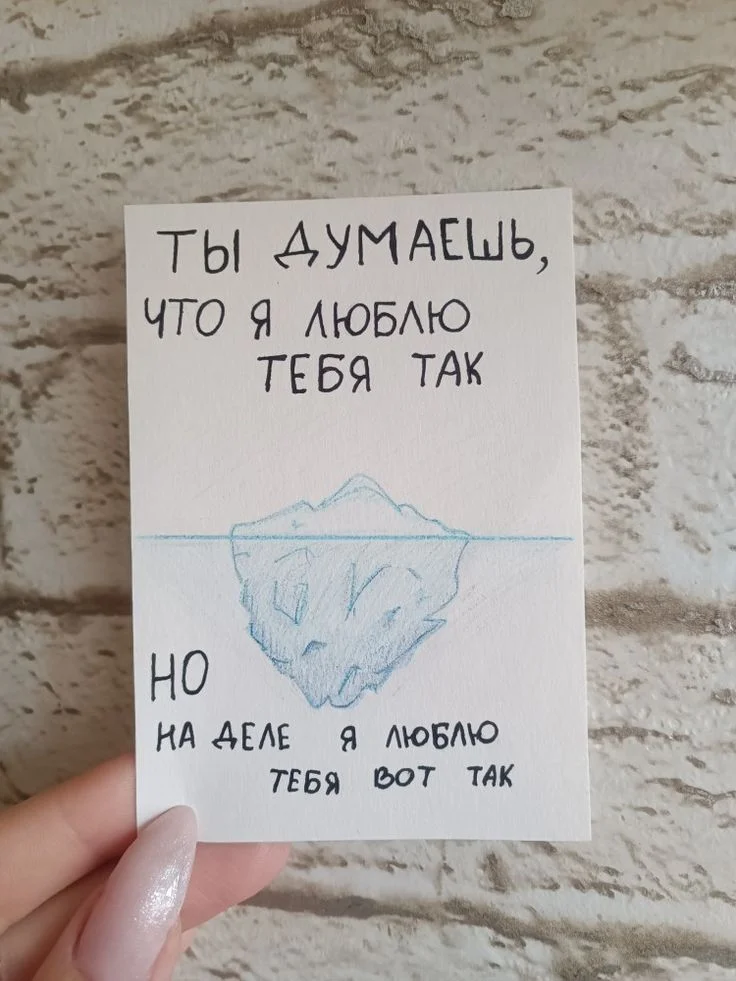 ТЫ ДУМАЕШЬ,
ЧТО Я ЛЮБЛЮ
ТЕБЯ ТАК
НО
НА ДЕЛЕ Я ЛЮБЛЮ
ТЕБЯ ВОТ ТАК